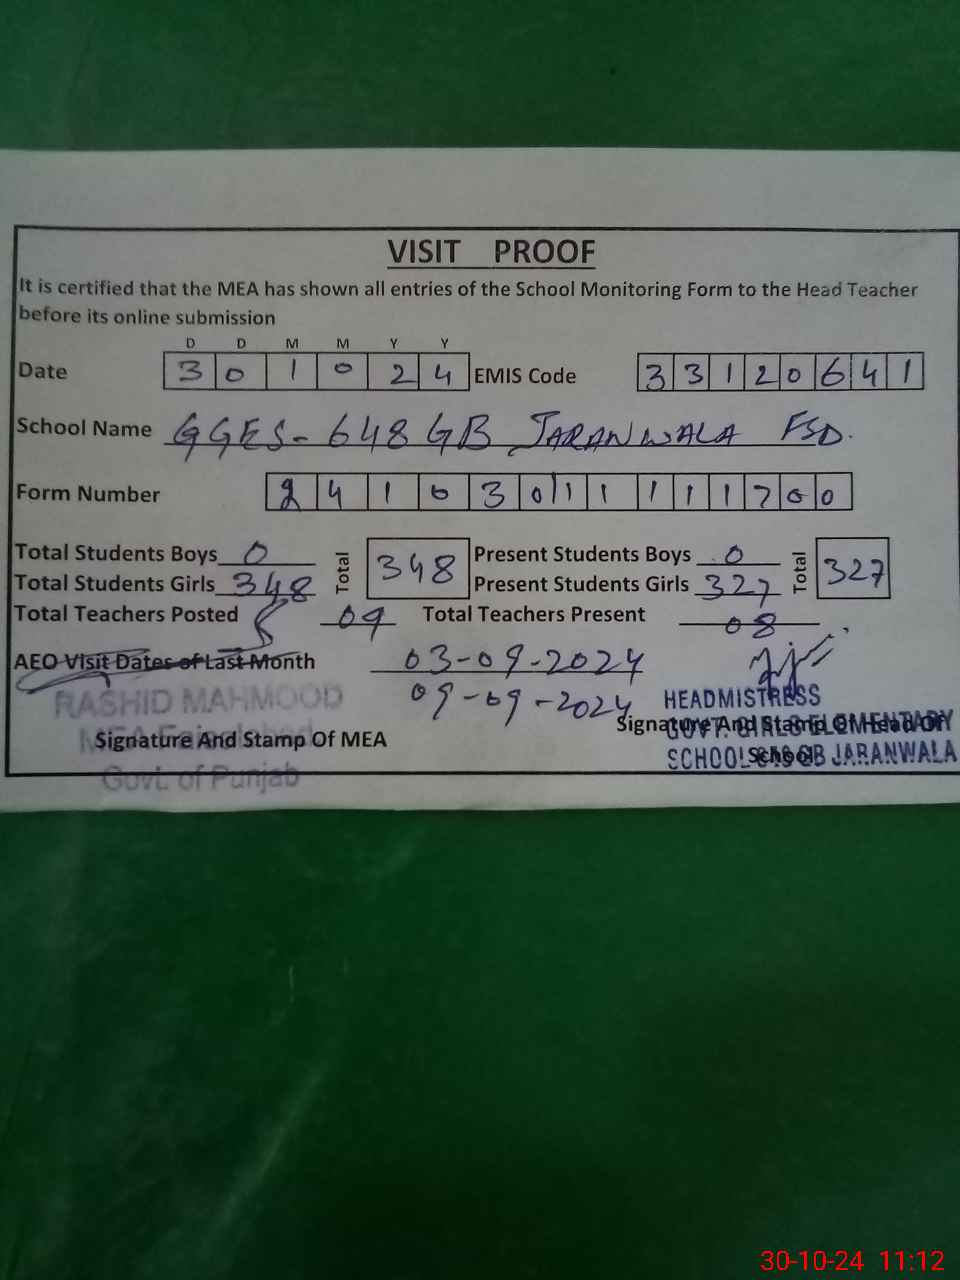 VISIT PROOF
It is certified that the MEA has shown all entries of the School Monitoring Form to the Head Teacher
before its online submission
D D M M Y Y
Date 3 0 1 0 2 4 EMIS Code 3 3 1 2 0 6 4 1
School Name GGES- 648 GB JARANWALA FSD.
Form Number 2 4 1 0 3 0 1 1 1 1 1 1 7 0 0
Total Students Boys 0 Total 348 Present Students Boys 0 Total 327
Total Students Girls 348 Present Students Girls 327
Total Teachers Posted 09 Total Teachers Present 08
AEO Visit Dates of Last Month 03-09-2024
09-09-2024
RASHID MAHMOOD
MEA Faisalabad
Govt. of Punjab
Signature And Stamp Of MEA
HEADMISTRESS
GOVT. GIRLS ELEMENTARY
SCHOOL GB JARANWALA
Signature And Stamp Of Head Of
School
30-10-24 11:12